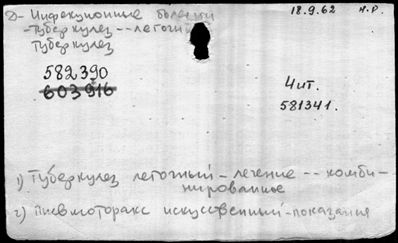 Д- Инфекционные болезни
-Туберкулез -- легочный
Туберкулез
18.9.62 Н.Р.
582390
603916
Чит.
581341.
1) Туберкулез легочный - лечение -- комби-
нированное
2) Пневмоторакс искусственный - показания